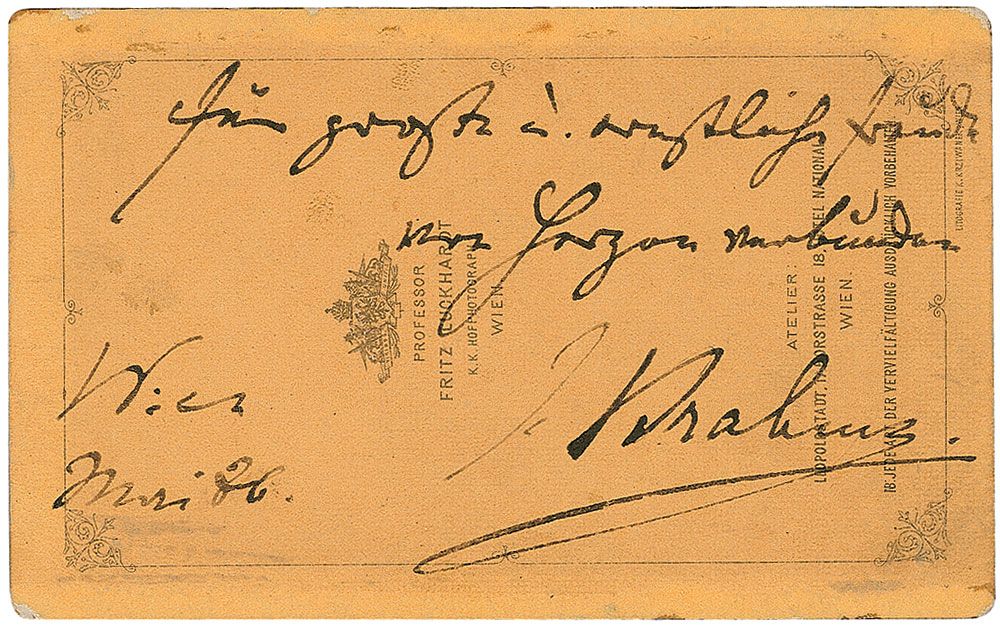 Für große u. ernstliche Freude
von Herzen verbunden
J. Brahms.
Wien
Mai 86.
PROFESSOR
FRITZ LUCKHARDT
K.K. HOFPHOTOGRAPH
WIEN
ATELIER:
LEOPOLDSTADT, TABORSTRASSE 18, HOTEL NATIONAL
WIEN.
JEDE ART DER VERVIELFÄLTIGUNG AUSDRÜCKLICH VORBEHALTEN